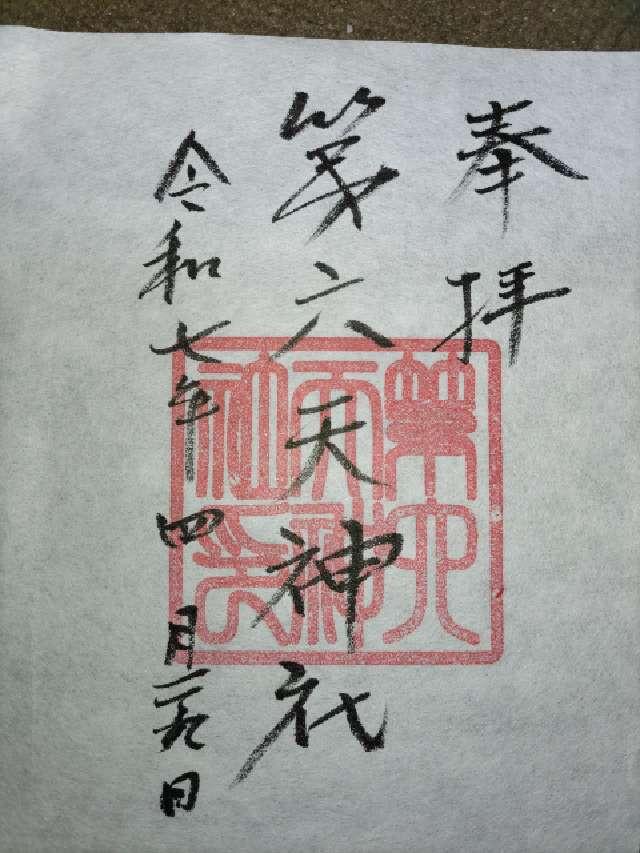 奉拝
第六天神社
令和七年四月二九日
第六
天神
社